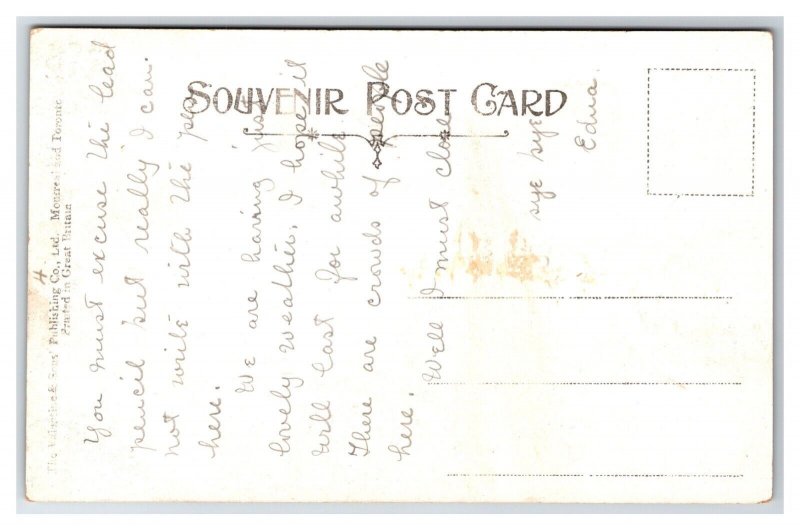 SOUVENIR POST CARD
The Valentine & Sons' Publishing Co., Ltd. Montreal and Toronto
Printed in Great Britain
4
You must excuse the lead
pencil but really I can.
not write with the pen
here.
We are having just
lovely weather, I hope it
will last for awhile
There are crowds of people
here. Well I must close
bye bye
Edna